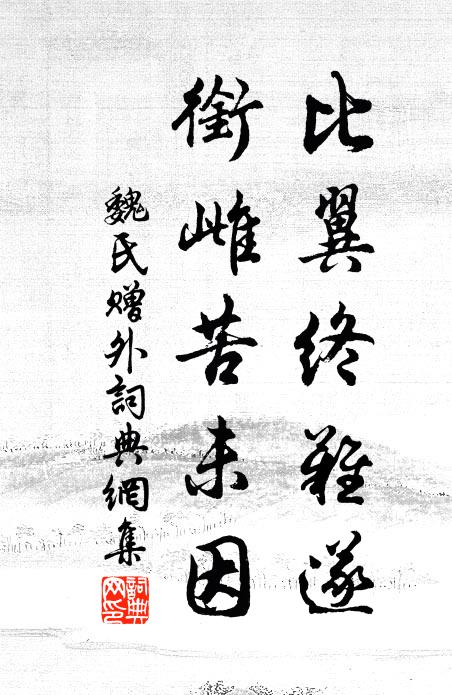 比翼终難遂
銜雌苦未因
魏氏赠外詞典網集
詞典网印